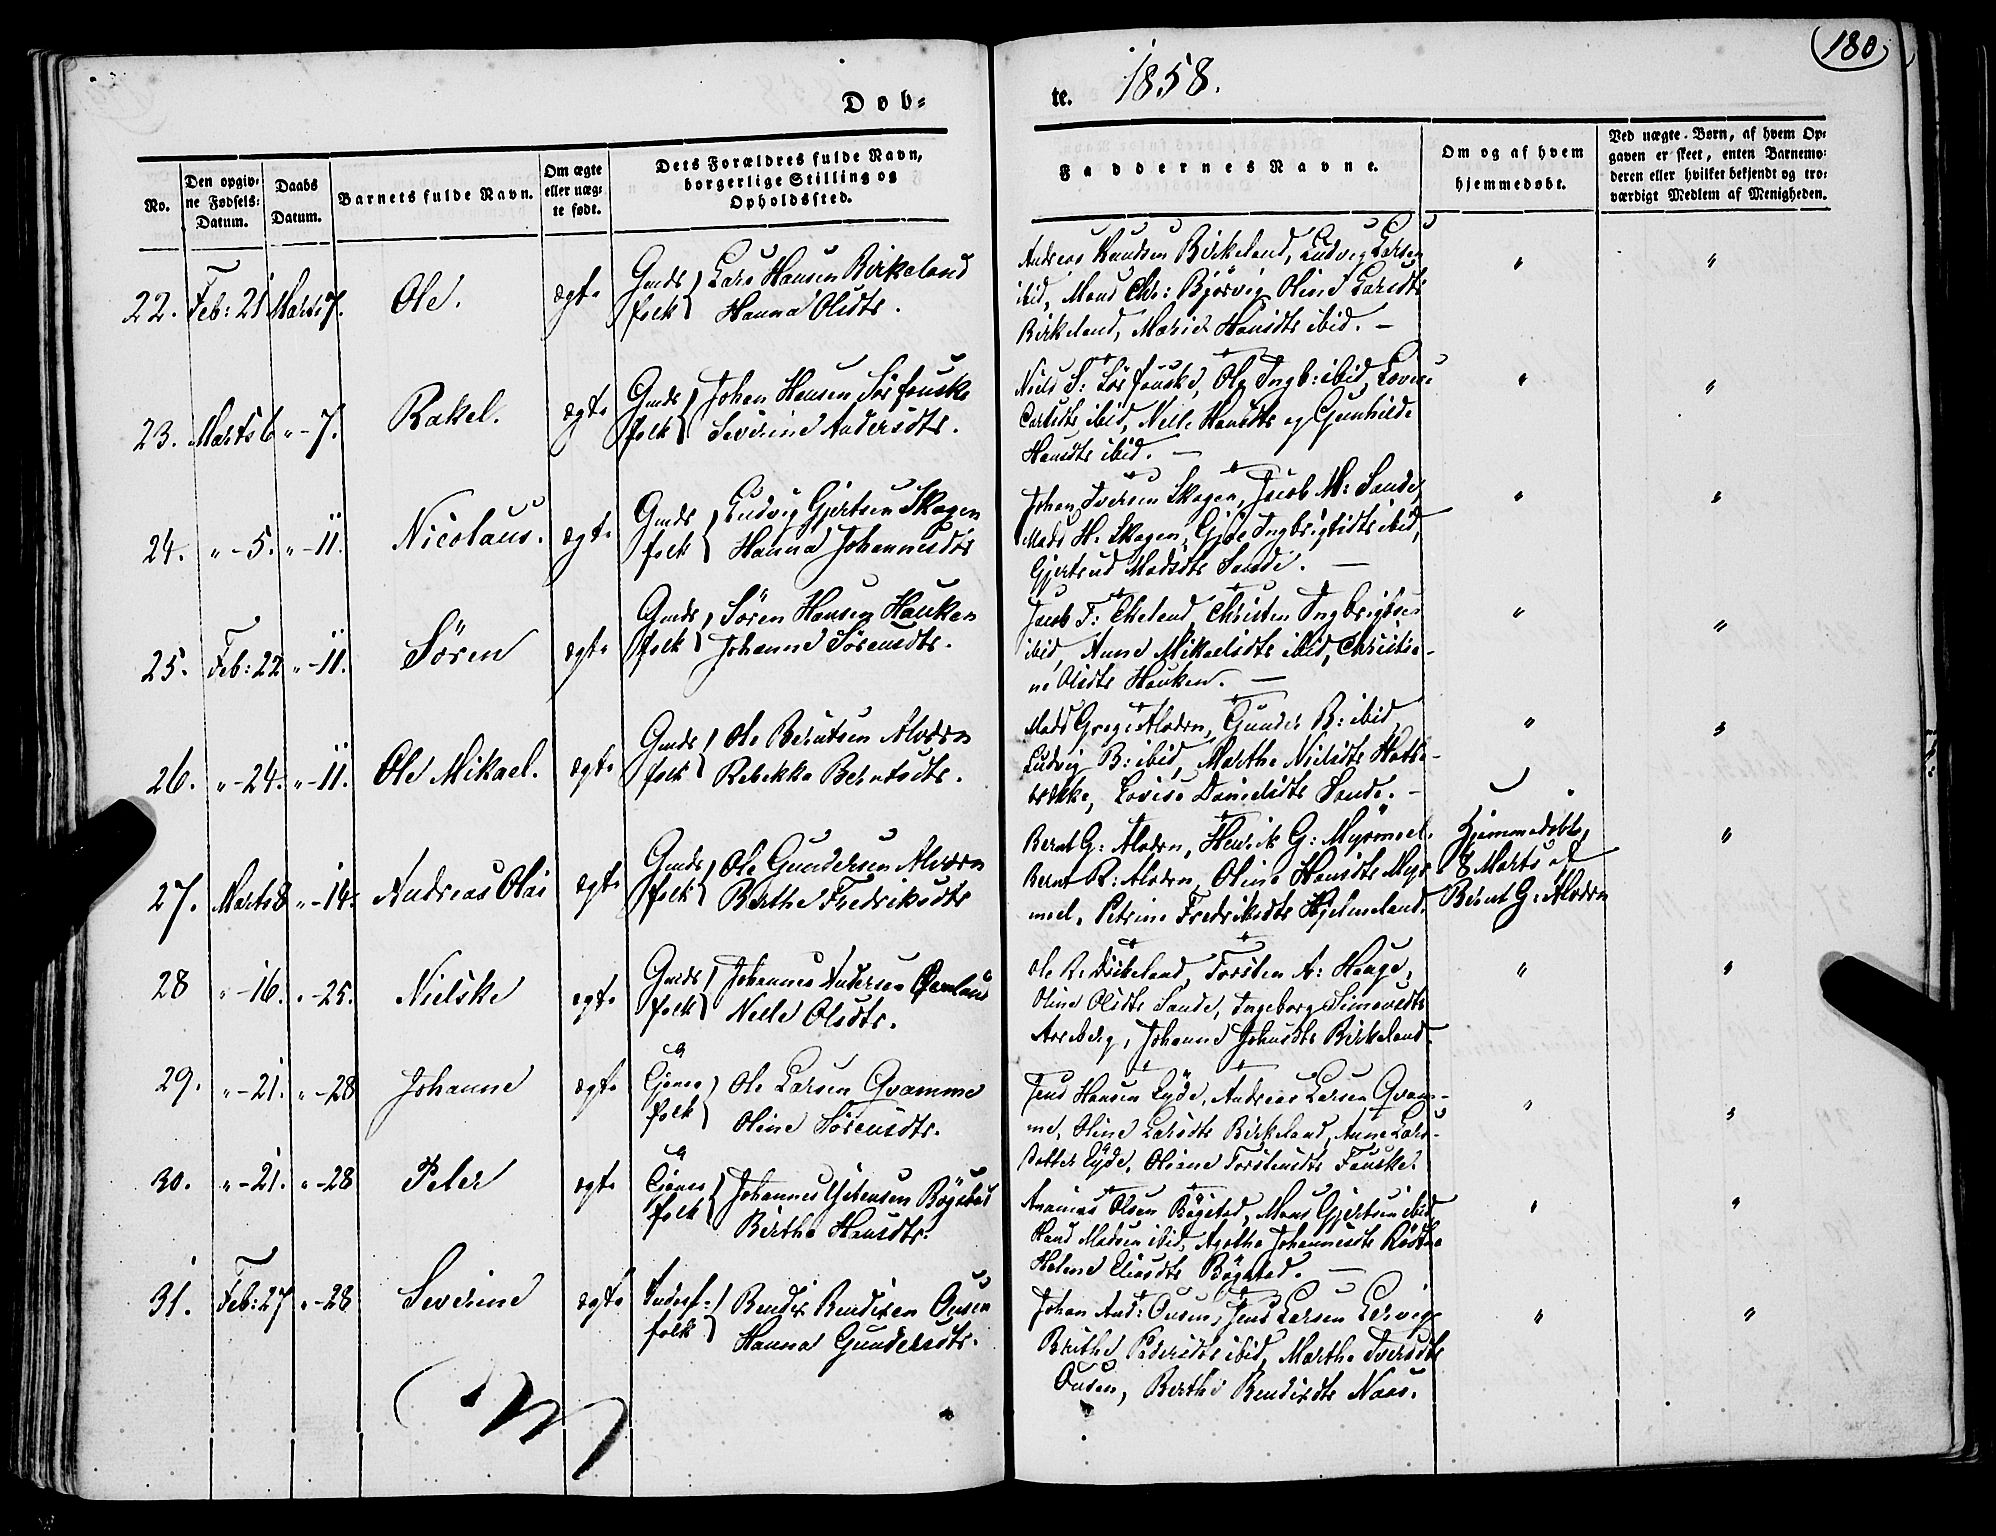 180
Døb=
te. 1858.
No.
Den opgiv=
ne Fødsels=
Datum.
Daabs
Datum.
Barnets fulde Navn.
Om ægte
eller uæg=
te født.
Dets Forældres fulde Navn,
borgerlige Stilling og
Opholdssted.
Faddernes Navne.
Om og af hvem
hjemmedøbt.
Ved uægte Børn, af hvem Op=
gaven er skeet, enten Barnemo=
deren eller hvilket bekjendt og tro=
værdigt Medlem af Menigheden.
22. Feb: 21 Marts 7. Ole. ægte
Gmds
folk
Lars Hansen Birkeland
Hanna Olsdtr.
Andreas Knudsen Birkeland, Ludvig Larsen
ibid, Mons Chr: Bjørvig, Oline Larsdtr
Birkeland, Marie Hansdtr ibid. –
" "
23. Marts 6 " - 7. Rakel. ægte
Gmds
folk
Johan Hansen Sørfouske
Severine Andersdtr.
Niels S: Sørfouske, Ole Ingb: ibid, Lovise
Carlsdtr ibid, Nille Hansdtr og Gunhilde
Hansdtr ibid. –
" "
24. " - 5. " - 11. Nicolaus. ægte
Gmds
folk
Ludvig Gjertsen Skagen
Hanna Johannesdtr
Johan Iversen Skagen, Jacob M: Sande,
Mads H. Skagen, Ingbrigtsdtr ibid,
Gjertrud Madsdtr Sande. –
" "
25. Feb: 22 " - 11. Søren ægte
Gmds
folk
Søren Hansen Hauken
Johanne Sørensdtr.
Jacob T: Christen Ingbrigtsen
ibid, Anne Mikaelsdtr ibid, Christia-
ne Olsdtr Hauken. –
" "
26. " - 24. " - 11. Ole Mikael. ægte
Gmds
folk
Ole Berntsen Alværn
Rebekka Berntsdtr.
Mads Greg: Alværn, Gunder B: ibid,
Ludvig B: ibid, Marthe Nielsdtr
Lovise Danielsdtr Sande. –
" "
27. Marts 8 " - 14. Andreas Olai ægte
Gmds
folk
Ole Gundersen Alværn
Berthe Fredriksdtr
Bernt G: Alværn, Henrik G: Myrmeel.
Bernt R: Alværn, Oline Hansdtr Myr-
meel, Petrine Fredriksdtr Hjelmeland.
Hjemmedøbt
8 Marts af
Bernt G: Alværn
"
28 " - 16. " - 25. Nielske ægte
Gmds
folk
Johannes Andersen
Nille Olsdtr.
Ole R: Torsten A: Hauge,
Oline Olsdtr Sande, Ingeborg Simonsdtr
Arneberg, Johanne Johnsdtr Birkeland.
" "
29. " - 21. " - 28 Johanne ægte
Tjenes
folk
Ole Larsen Qvamme
Oline Sørensdtr.
Jens Hansen Eyde, Andreas Larsen Qvam-
me, Oline Larsdtr Birkeland, Anne Lars-
datter Eyde, Oliane Torstensdtr Fouske.
" "
30. " - 21. " - 28 Peter ægte
Tjenes
folk
Johannes Bøgstad
Birthe Hansdtr.
Ananias Olsen Bøgstad, Mons Gjertsen ibid,
Hans Madsen ibid, Agathe Johannesdtr
Helene Eliasdtr Bøgstad. –
" "
31. Feb: 27 " - 28 Severine ægte
Inders=
folk
Bendix Bendixen Ousen
Hanna Gundersdtr.
Johan And: Ousen, Jens Larsen Lervig
Brithe Pedersdtr ibid, Marthe Iversdtr
Ousen, Berthe Bendixdtr Naas.
" "